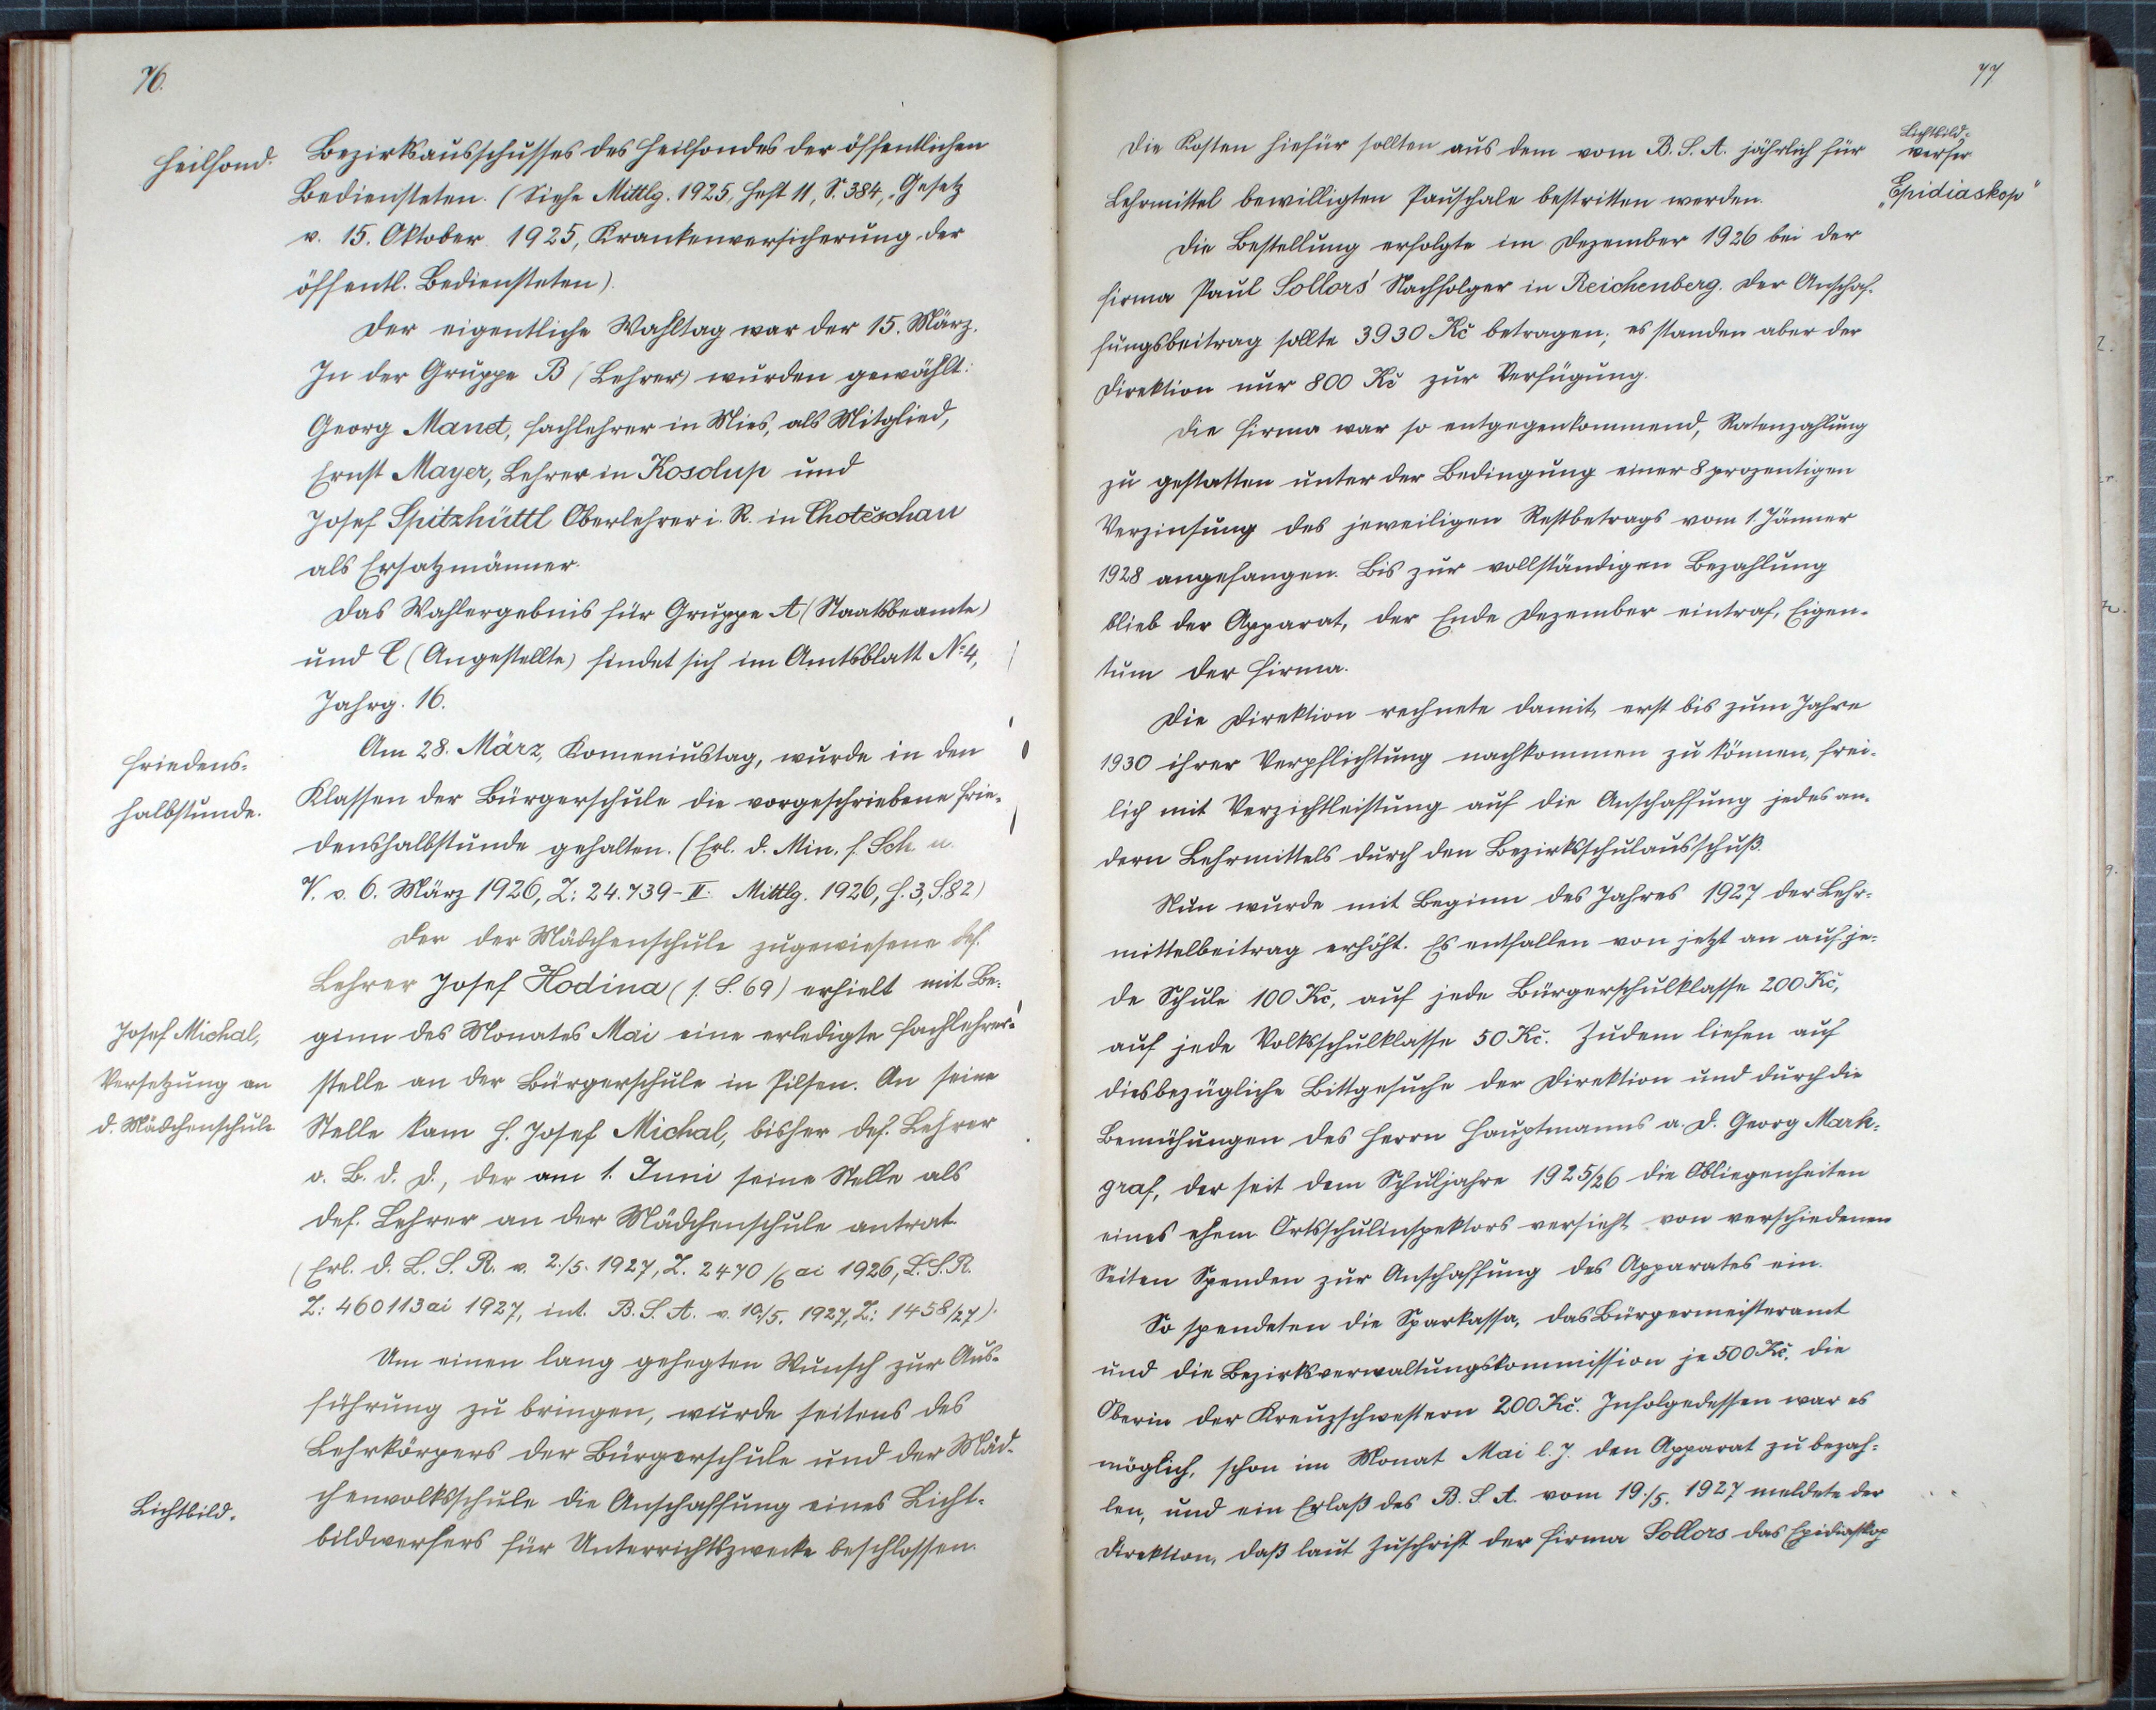 76.
Heilfond.
Bezirksausschusses des Heilfondes der öffentlichen
Bediensteten. (Siehe Mittlg. 1925, Heft 11, S. 384, Gesetz
v. 15. Oktober 1925, Krankenversicherung der
öffentl. Bediensteten).
Der eigentliche Wahltag war der 15. März.
In der Gruppe B (Lehrer) wurden gewählt:
Georg Manet, Fachlehrer in Mies, als Mitglied,
Ernst Mayer, Lehrer in Kosolup und
Josef Spitzhüttl Oberlehrer i. R. in Chotěschau
als Ersatzmänner.
Das Wahlergebnis für Gruppe A (Staatsbeamte)
und C (Angestellte) findet sich im Amtsblatt No 4,
Jahrg. 16.
Friedens-
halbstunde.
Am 28. März, Komeniustag, wurde in den
Klassen der Bürgerschule die vorgeschriebene Frie-
denshalbstunde gehalten. (Erl. d. Min. f. Sch. u.
V. v. 6. März 1926, Z: 24.739-II: Mittlg. 1926, H. 3, S. 82)
Der der Mädchenschule zugewiesene def.
Lehrer Josef Hodina (s. S. 69) erhielt mit Be-
Josef Michal,
Versetzung an
d. Mädchenschule
ginn des Monates Mai eine erledigte Fachlehrer-
stelle an der Bürgerschule in Pilsen. An seine
Stelle kam H. Josef Michal, bisher def. Lehrer
o. B. d. D., der am 1. Juni seine Stelle als
def. Lehrer an der Mädchenschule antrat
(Erl. d. L. S. R. v. 2./5. 1927, Z. 2470/6 ai 1926, L. S. R.
Z: 460113 ai 1927, int. B. S. A. v. 10./5. 1927, Z: 1458/27).
Um einen lang gehegten Wunsch zur Aus-
führung zu bringen, wurde seitens des
Lehrkörpers der Bürgerschule und der Mäd-
Lichtbild.
chenvolksschule die Anschaffung eines Licht-
bildwerfers für Unterrichtszwecke beschlossen.
77
Lichtbild-
werfer
„Epidiaskop“
Die Kosten hiefür sollten aus dem vom B. S. A. jährlich für
Lehrmittel bewilligten Pauschale bestritten werden.
Die Bestellung erfolgte im Dezember 1926 bei der
Firma Paul Sollors' Nachfolger in Reichenberg. Der Anschaf-
fungsbeitrag sollte 3930 Kč betragen; es standen aber der
Direktion nur 800 Kč zur Verfügung.
Die Firma war so entgegenkommend, Ratenzahlung
zu gestatten unter der Bedingung einer 8 prozentigen
Verzinsung des jeweiligen Restbetrags vom 1. Jänner
1928 angefangen. Bis zur vollständigen Bezahlung
blieb der Apparat, der Ende Dezember eintraf, Eigen-
tum der Firma.
Die Direktion rechnete damit, erst bis zum Jahre
1930 ihrer Verpflichtung nachkommen zu können, frei-
lich mit Verzichtleistung auf die Anschaffung jedes an-
dern Lehrmittels durch den Bezirksschulausschuß.
Nun wurde mit Beginn des Jahres 1927 der Lehr-
mittelbeitrag erhöht. Es entfallen von jetzt an auf je-
de Schule 100 Kč, auf jede Bürgerschulklasse 200 Kč,
auf jede Volksschulklasse 50 Kč. Zudem liefen auf
diesbezügliche Bittgesuche der Direktion und durch die
Bemühungen des Herrn Hauptmanns a. D. Georg Mark-
graf, der seit dem Schuljahre 1925/26 die Obliegenheiten
eines ehem. Ortsschulinspektors versieht von verschiedenen
Seiten Spenden zur Anschaffung des Apparates ein.
So spendeten die Sparkassa, das Bürgermeisteramt
und die Bezirksverwaltungskommission je 500 Kč, die
Oberin der Kreuzschwestern 200 Kč. Infolgedessen war es
möglich, schon im Monat Mai l. J. den Apparat zu bezah-
len, und ein Erlaß des B. S. A. vom 19./5. 1927 meldete der
Direktion, daß laut Zuschrift der Firma Sollors das Epidiaskop